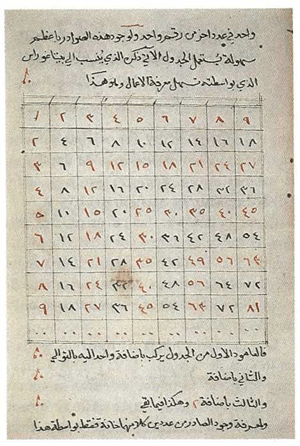 واحد في عدد اخر من رقم واحد ولوجود هذه الصوادر باعظم
سهولة يستعمل الجدول الآتي ذكره الذي ينسب الى بيتاغوراس
الذي بواسطته تسهل معرفة الاعمال وهو هذا
١ ٢ ٣ ٤ ٥ ٦ ٧ ٨ ٩
٢ ٤ ٦ ٨ ١٠ ١٢ ١٤ ١٦ ١٨
٣ ٦ ٩ ١٢ ١٥ ١٨ ٢١ ٢٤ ٢٧
٤ ٨ ١٢ ١٦ ٢٠ ٢٤ ٢٨ ٣٢ ٣٦
٥ ١٠ ١٥ ٢٠ ٢٥ ٣٠ ٣٥ ٤٠ ٤٥
٦ ١٢ ١٨ ٢٤ ٣٠ ٣٦ ٤٢ ٤٨ ٥٤
٧ ١٤ ٢١ ٢٨ ٣٥ ٤٢ ٤٩ ٥٦ ٦٣
٨ ١٦ ٢٤ ٣٢ ٤٠ ٤٨ ٥٦ ٦٤ ٧٢
٩ ١٨ ٢٧ ٣٦ ٤٥ ٥٤ ٦٣ ٧٢ ٨١
فالعامود الاول من الجدول يركب باضافة واحد اليه بالتوالي
والثاني باضافة
والثالث باضافة وهكذا فيما بقي
ولمعرفة وجود الصادر من عددين كلاهما خانة فقط بواسطة هذا